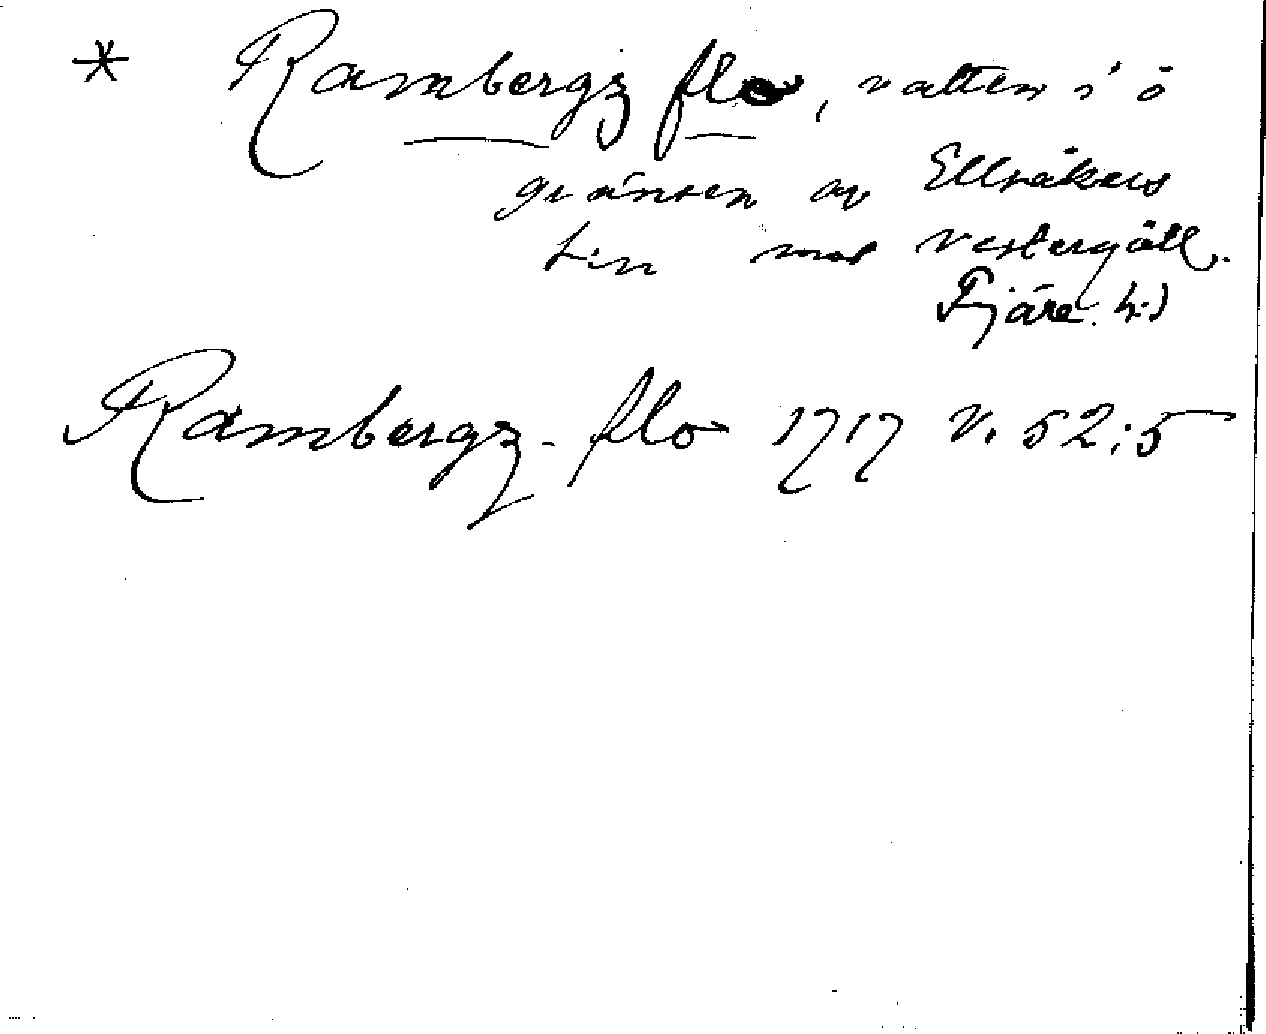 * Rambergz flo, vatten i ö
gränsen av Ellsåkers
sn mot Västergötl.
Fjäre hd
Rambergz-flo 1717 v. 52:5